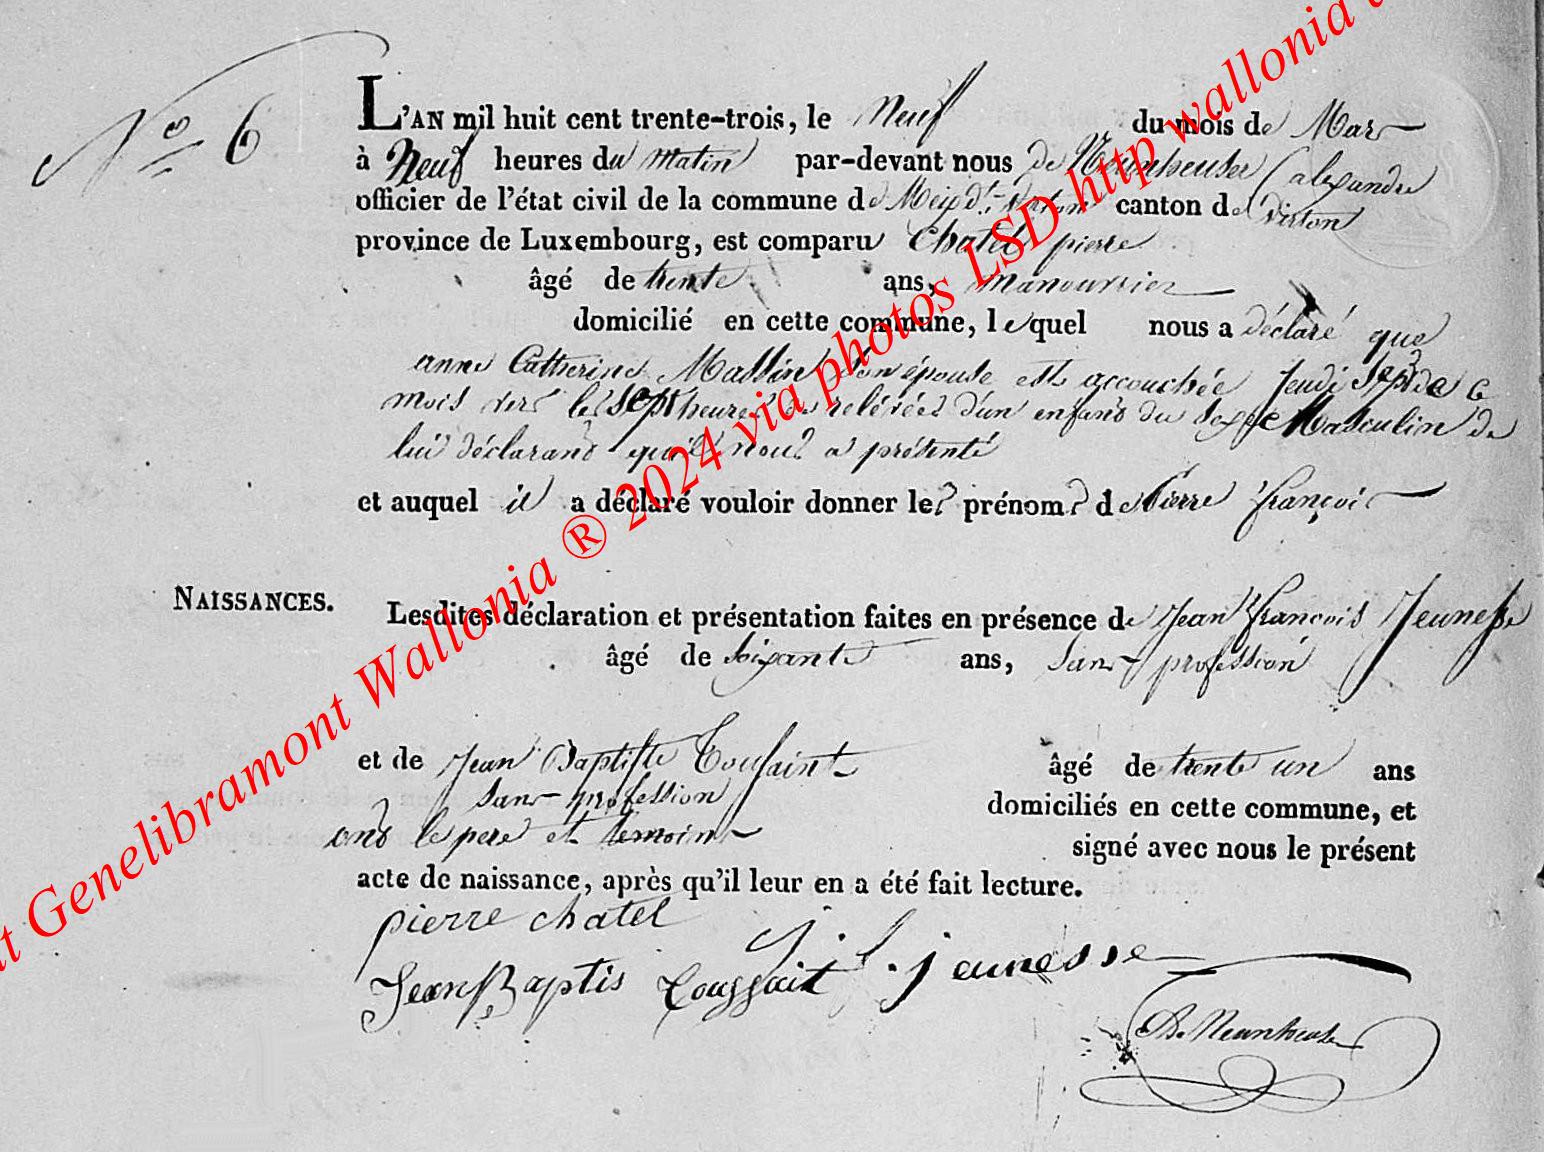 N° 6
L'AN mil huit cent trente-trois, le Neuf du mois de Mars
à Neuf heures du matin par-devant nous de Neunheuser (alexandre
officier de l'état civil de la commune de Meix dt Virton canton de virton
province de Luxembourg, est comparu Chatel pierre
âgé de trente ans, manouvrier
domicilié en cette commune, lequel nous a déclaré que
anne Catherine Massin son épouse est accouchée Jeudi sept de ce
mois vers les sept heures de relévées d'un enfant du sexe Masculin de
lui déclarant qu'il nous a présenté
et auquel il a déclaré vouloir donner les prénoms de Pierre françois
NAISSANCES.
Lesdites déclaration et présentation faites en présence de Jean françois Jeunesse
âgé de soixante ans, sans profession
et de Jean Baptiste Toussaint âgé de trente un ans
sans profession domiciliés en cette commune, et
ont le pere et temoins signé avec nous le présent
acte de naissance, après qu'il leur en a été fait lecture.
pierre chatel
j. f. jeunesse
Jean Baptis Toussait
De Neunheuser
Genelibramont Wallonia ® 2024 via photos LSD http wallonia